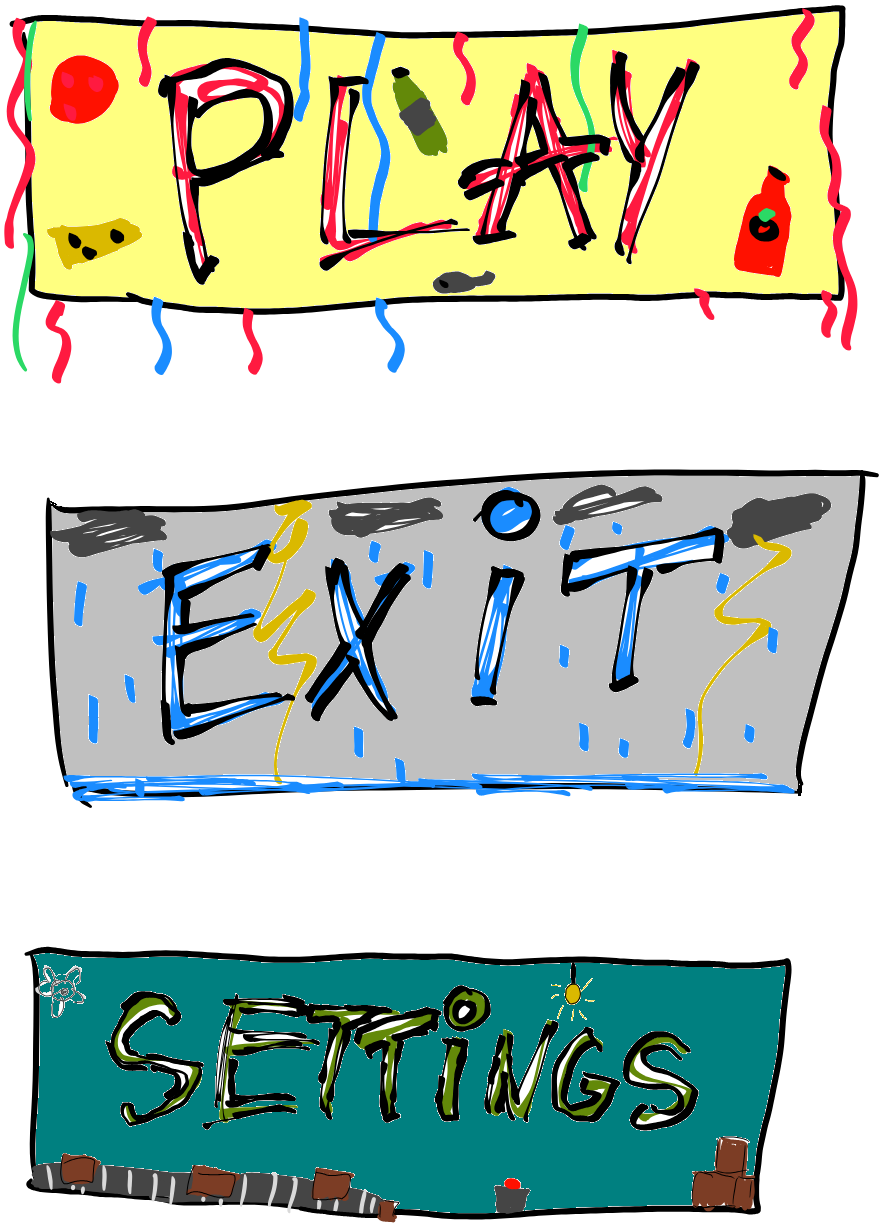 PLAY
EXiT
SETTiNGS